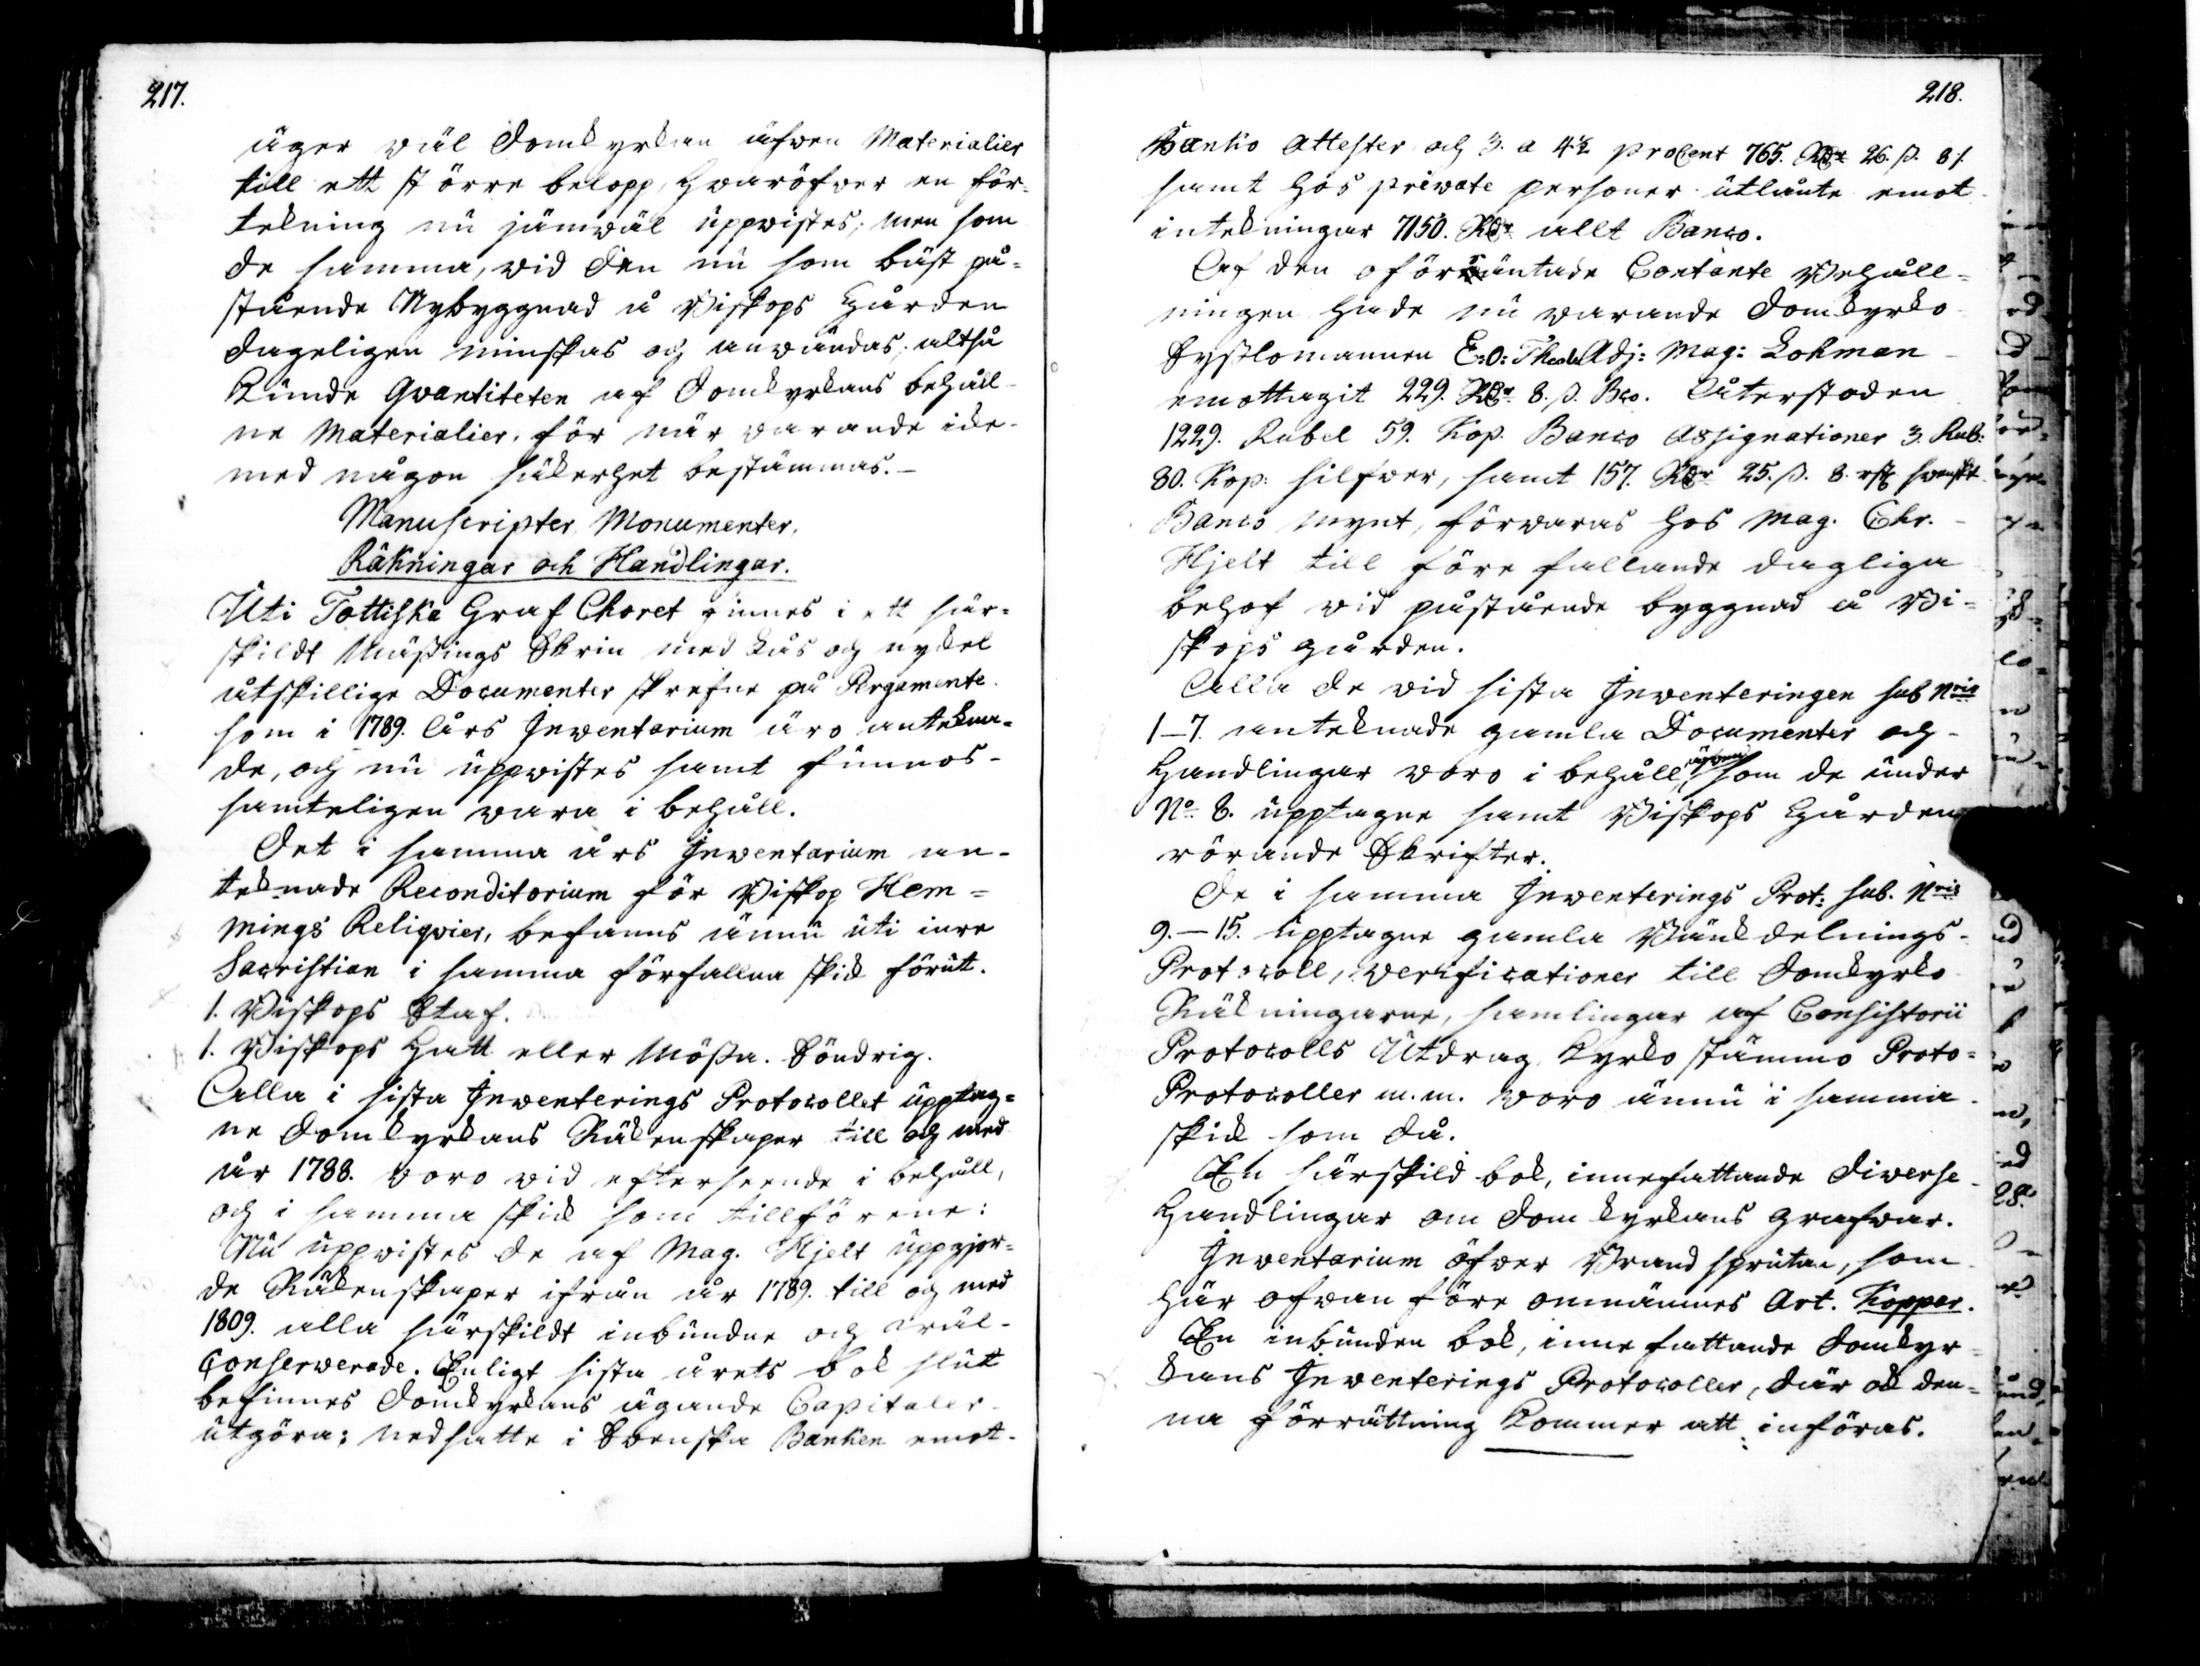 217.
äger wäl Domkyrkan äfwen Materialier
till ett större belopp, hwaröfwer en för-
tekning nu jämwäl uppwistes; men som
de samma, wid den nu som bäst på-
stående Nybyggnad å Biskops Gården
dageligen minskas och användas; altså
kunde Qvantiteten af Domkyrkans behåll-
ne Materialier, för när warande icke
med någon säkerhet bestämmas.-
Manuscripter, Monumenter,
Räkningar och Handlingar.
Uti Tottiska Graf Choret finnes i ett sär-
skildt Mässings Skrin med Lås och nyckel
åtskillige Documenter skrefne på Pergamente
som i 1789. Års Inventarium äro antekna-
de, och nu uppwistes samt funnos-
samteligen wara i behåll.
Det i samma års Inventarium an-
teknade Reconditorium för Biskop Hem=
mings Reliqvier, befanns ännu uti inre
Sacristian i samma förfallna skick förut.
1. Biskops Staf.
1. Biskops Hatt eller Mössa. Söndrig.
Alla i sista Inventerings Protocollet upptag=
ne Domkyrkans Räkenskaper till och med
år 1788. woro wid efterseende i behåll,
och i samma skick som tillförene:
Nu uppwistes de af Mag. Hjelt uppgjor=
de Räkenskaper ifrån år 1789. till och med
1809. alla särskildt inbundne och wäl-
Conserverade. Enligt sista årets bok slut
befinnes Domkyrkans ägande Capitaler
utgöra: nedsatte i Svenska Banken emot-
218.
Banko Attester och 3. a 4½ procent 765. Rdr 26. ß. 8 f.
samt hos private personer utlånte emot
intekningar 7150. Rdr allt Banco.
Af den oförräntade Contante Behåll-
ningen hade nu warande Domkyrko
Sysslomannen E:O: Theol Adj: Mag: Lohman
emottagit 229. Rdr 8. ß. Bco. Återstoden
1229. Rubel 59. Kop. Banco Assignationer 3. Rub:
80. Kop: silfwer, samt 157. Rdr 25. ß. 8. rst swenskt
Banco mynt, förwaras hos Mag. Chr.
Hjelt till före fallande dagliga
behof wid påstående byggnad å Bi-
skops gården.
Alla de wid sista Inventeringen sub Nris
1-7. anteknade gamla Documenter och
Handlingar woro i behåll, äfwen som de under
No 8. upptagne samt Biskops Gården
rörande Skrifter.
De i samma Inventerings Prot: sub. Nris
9.-15. upptagne gamla Bänkdelnings-
Protocoll, verificationer till Domkyrko
Räkningarne, samlingar af Consistorii
Protocolls Utdrag, Kyrko stämmo Proto=
Protocoller m.m. woro ännu i samma
skick som då.
En särskild bok, innefattande diverse
Handlingar om Domkyrkans grafwar.
Inventarium öfwer Brand sprutan, som
här ofwan före omnämnes Art. Koppar.
En inbunden bok, inne fattande Domkyr=
kans Inventerings Protocoller, där ock den-
na förrättning kommer att införas.